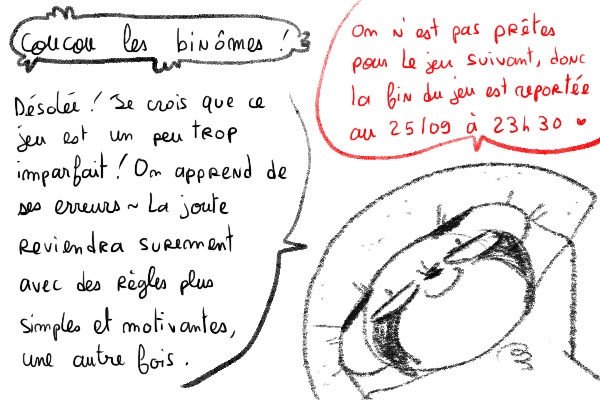 Coucou les binômes !
Désolée ! Je crois que ce
jeu est un peu trop
imparfait ! On apprend de
ses erreurs ~ La joute
reviendra surement
avec des règles plus
simples et motivantes,
une autre fois.
On n'est pas prêtes
pour le jeu suivant, donc
la fin du jeu est reportée
au 25/09 à 23h30 ♥